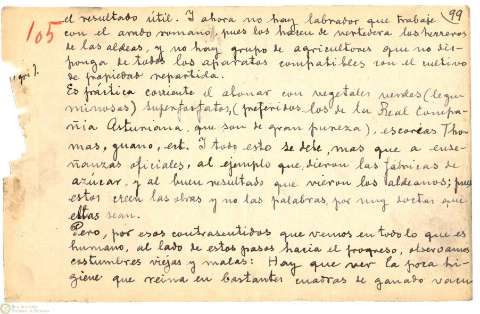 99
105
el resultado útil. I ahora no hay labrador que trabaje
con el arado romano, pues los hacen de vertedera los herreros
de las aldeas, y no hay grupo de agricultores que no dis-
ponga de todos los aparatos compatibles con el cultivo
de propiedad repartida.
Es práctica corriente el abonar con vegetales verdes (legu-
minosas) superfosfatos, (preferidos los de la Real Compa-
ñia Asturiana, que son de gran pureza), escorias Tho-
mas, guano, est. I todo esto se debe, mas que a ense-
ñanzas oficiales, al ejemplo que dieron las fábricas de
azúcar, y al buen resultado que vieron los aldeanos; pues
estos creen las obras y no las palabras, por muy doctas que
ellas sean.
Pero, por esos contrasentidos que vemos en todo lo que es
humano, al lado de estos pasos hacia el progreso, observamos
costumbres viejas y malas: Hay que ver la poca hi-
giene que reina en bastantes cuadras de ganado vacu